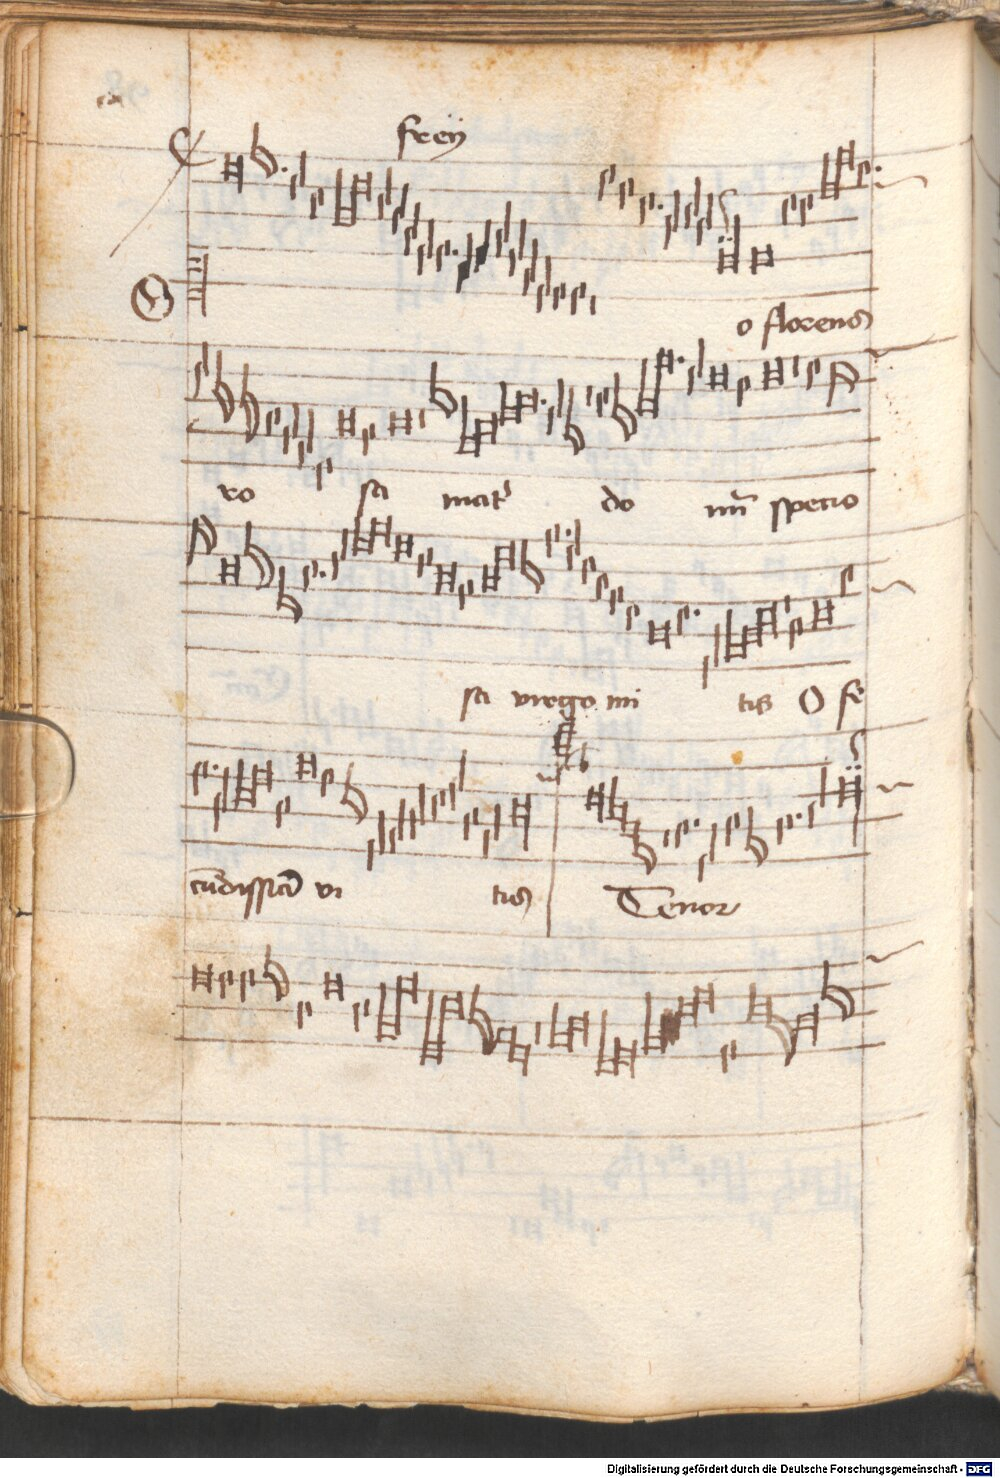 frey
O
o florens
ro sa mat do mi specio
sa virgo mi tis O fe
vi tis Tenor
Digitalisierung gefördert durch die Deutsche Forschungsgemeinschaft - DFG